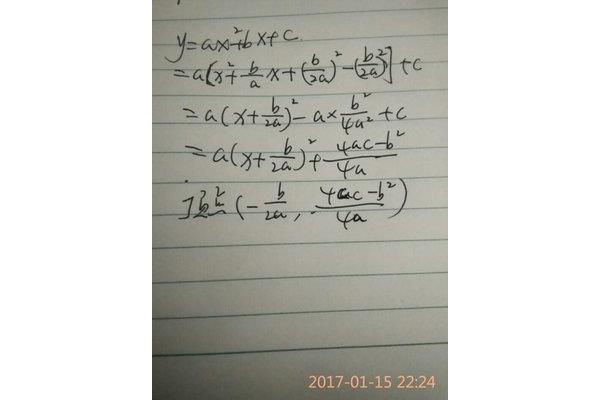 y=ax²+bx+c
=a[x²+b/a x+(b/2a)²-(b/2a)²]+c
=a(x+b/2a)²-a×b²/4a²+c
=a(x+b/2a)²+4ac-b²/4a
(-b/2a, 4ac-b²/4a)
2017-01-15 22:24